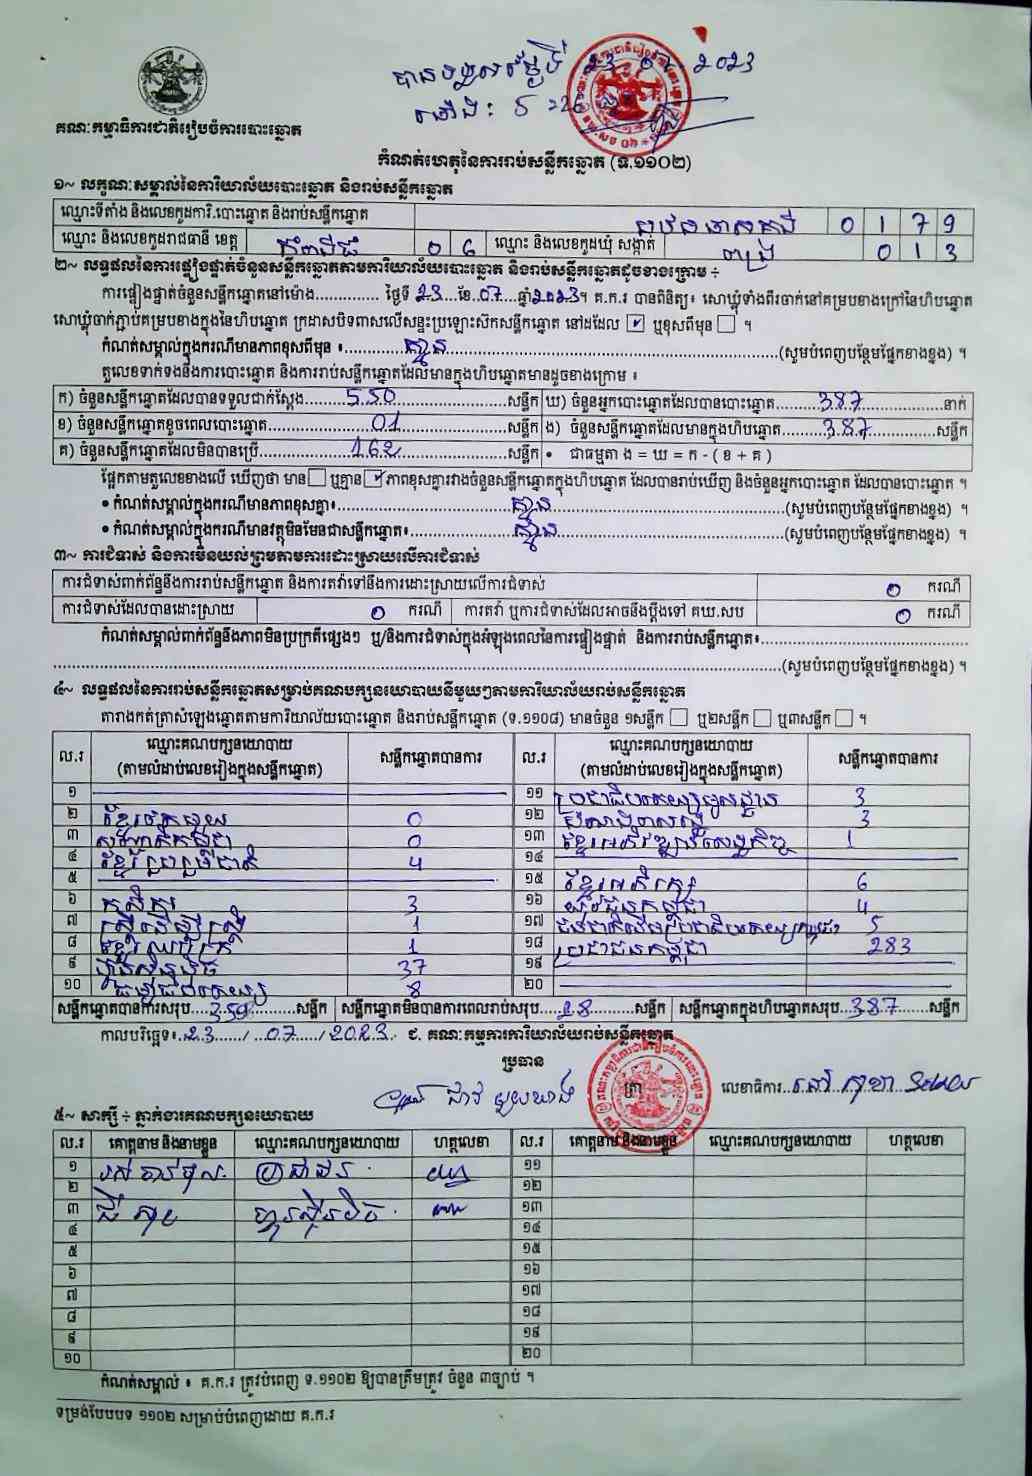 បានទទួលថ្ងៃទី 23 07 2023
ម៉ោង: 5
គណៈកម្មាធិការជាតិរៀបចំការបោះឆ្នោត
កំណត់ហេតុនៃការរាប់សន្លឹកឆ្នោត (ទ.១១០២)
១~ លក្ខណៈសម្គាល់នៃការិយាល័យបោះឆ្នោត និងរាប់សន្លឹកឆ្នោត
ឈ្មោះទីតាំង និងលេខកូដការិ.បោះឆ្នោត និងរាប់សន្លឹកឆ្នោត 0 1 7 9
ឈ្មោះ និងលេខកូដរាជធានី ខេត្ត កំពង់ធំ 0 6 ឈ្មោះ និងលេខកូដឃុំ សង្កាត់ 0 1 3
២~ លទ្ធផលនៃការផ្ទៀងផ្ទាត់ចំនួនសន្លឹកឆ្នោតតាមការិយាល័យបោះឆ្នោត និងរាប់សន្លឹកឆ្នោតដូចខាងក្រោម ÷
ការផ្ទៀងផ្ទាត់ចំនួនសន្លឹកឆ្នោតនៅម៉ោង.............. ថ្ងៃទី 23 ខែ 07 ឆ្នាំ 2023។ គ.ក.រ បានពិនិត្យ៖ សោឃ្លុំទាំងពីរចាក់នៅគម្របខាងក្រៅនៃហិបឆ្នោត
សោឃ្លុំចាក់ភ្ជាប់គម្របខាងក្នុងនៃហិបឆ្នោត ក្រដាសបិទពាសលើសន្ទះប្រឡោះស៊កសន្លឹកឆ្នោត នៅដដែល ✓ ឬខុសពីមុន ។
កំណត់សម្គាល់ក្នុងករណីមានភាពខុសពីមុន ៖ គ្មាន (សូមបំពេញបន្ថែមផ្នែកខាងខ្នង) ។
តួលេខទាក់ទងនឹងការបោះឆ្នោត និងការរាប់សន្លឹកឆ្នោតដែលមានក្នុងហិបឆ្នោតមានដូចខាងក្រោម ៖
ក) ចំនួនសន្លឹកឆ្នោតដែលបានទទួលជាក់ស្តែង 550 សន្លឹក ឃ) ចំនួនអ្នកបោះឆ្នោតដែលបានបោះឆ្នោត 387 នាក់
ខ) ចំនួនសន្លឹកឆ្នោតខូចពេលបោះឆ្នោត 01 សន្លឹក ង) ចំនួនសន្លឹកឆ្នោតដែលមានក្នុងហិបឆ្នោត 387 សន្លឹក
គ) ចំនួនសន្លឹកឆ្នោតដែលមិនបានប្រើ 162 សន្លឹក • ជាធម្មតា ង = ឃ = ក - ( ខ + គ )
ផ្អែកតាមតួលេខខាងលើ ឃើញថា មាន ឬគ្មាន ✓ ភាពខុសគ្នារវាងចំនួនសន្លឹកឆ្នោតក្នុងហិបឆ្នោត ដែលបានរាប់ឃើញ និងចំនួនអ្នកបោះឆ្នោត ដែលបានបោះឆ្នោត ។
• កំណត់សម្គាល់ក្នុងករណីមានភាពខុសគ្នា៖ គ្មាន (សូមបំពេញបន្ថែមផ្នែកខាងខ្នង) ។
• កំណត់សម្គាល់ក្នុងករណីមានវត្ថុមិនមែនជាសន្លឹកឆ្នោត៖ គ្មាន (សូមបំពេញបន្ថែមផ្នែកខាងខ្នង) ។
៣~ ការជំទាស់ និងការមិនយល់ព្រមតាមការដោះស្រាយលើការជំទាស់
ការជំទាស់ពាក់ព័ន្ធនឹងការរាប់សន្លឹកឆ្នោត និងការតវ៉ាទៅនឹងការដោះស្រាយលើការជំទាស់ 0 ករណី
ការជំទាស់ដែលបានដោះស្រាយ 0 ករណី ការតវ៉ា ឬការជំទាស់ដែលអាចនឹងប្តឹងទៅ គឃ.សប 0 ករណី
កំណត់សម្គាល់ពាក់ព័ន្ធនឹងភាពមិនប្រក្រតីផ្សេងៗ ឬ/និងការជំទាស់ក្នុងអំឡុងពេលនៃការផ្ទៀងផ្ទាត់ និងការរាប់សន្លឹកឆ្នោត៖
(សូមបំពេញបន្ថែមផ្នែកខាងខ្នង) ។
៤~ លទ្ធផលនៃការរាប់សន្លឹកឆ្នោតសម្រាប់គណបក្សនយោបាយនីមួយៗតាមការិយាល័យរាប់សន្លឹកឆ្នោត
តារាងកត់ត្រាសំឡេងឆ្នោតតាមការិយាល័យបោះឆ្នោត និងរាប់សន្លឹកឆ្នោត (ទ.១១០៨) មានចំនួន ១សន្លឹក ឬ២សន្លឹក ឬ៣សន្លឹក ។
ល.រ ឈ្មោះគណបក្សនយោបាយ (តាមលំដាប់លេខរៀងក្នុងសន្លឹកឆ្នោត) សន្លឹកឆ្នោតបានការ ល.រ ឈ្មោះគណបក្សនយោបាយ (តាមលំដាប់លេខរៀងក្នុងសន្លឹកឆ្នោត) សន្លឹកឆ្នោតបានការ
១ ១១ ប្រជាធិបតេយ្យមូលដ្ឋាន 3
២ ខ្មែរតែមួយ 0 ១២ 3
៣ 0 ១៣ ខ្មែរអភិវឌ្ឍន៍សេដ្ឋកិច្ច 1
៤ ខ្មែររួបរួមជាតិ 4 ១៤
៥ ១៥ ខ្មែរអភិរក្ស 6
៦ កសិករ 3 ១៦ យុវជនកម្ពុជា 4
៧ ស្ត្រីដើម្បីស្ត្រី 1 ១៧ 5
៨ ខ្មែរឈប់ក្រ 1 ១៨ ប្រជាជនកម្ពុជា 283
៩ ហ្វ៊ុនស៊ិនប៉ិច 37 ១៩
១០ ធម្មាធិបតេយ្យ 8 ២០
សន្លឹកឆ្នោតបានការសរុប 359 សន្លឹក សន្លឹកឆ្នោតមិនបានការពេលរាប់សរុប 28 សន្លឹក សន្លឹកឆ្នោតក្នុងហិបឆ្នោតសរុប 387 សន្លឹក
កាលបរិច្ឆេទ៖ 23 / 07 / 2023 ជ. គណៈកម្មការការិយាល័យរាប់សន្លឹកឆ្នោត
ប្រធាន
ត្រា លេខាធិការ
៥~ សាក្សី ÷ ភ្នាក់ងារគណបក្សនយោបាយ
ល.រ គោត្តនាម និងនាមខ្លួន ឈ្មោះគណបក្សនយោបាយ ហត្ថលេខា ល.រ គោត្តនាម និងនាមខ្លួន ឈ្មោះគណបក្សនយោបាយ ហត្ថលេខា
១ ១១
២ ១២
៣ ហ្វ៊ុនស៊ិនប៉ិច ១៣
៤ ១៤
៥ ១៥
៦ ១៦
៧ ១៧
៨ ១៨
៩ ១៩
១០ ២០
កំណត់សម្គាល់ ៖ គ.ក.រ ត្រូវបំពេញ ទ.១១០២ ឱ្យបានត្រឹមត្រូវ ចំនួន ៣ច្បាប់ ។
ទម្រង់បែបបទ ១១០២ សម្រាប់បំពេញដោយ គ.ក.រ